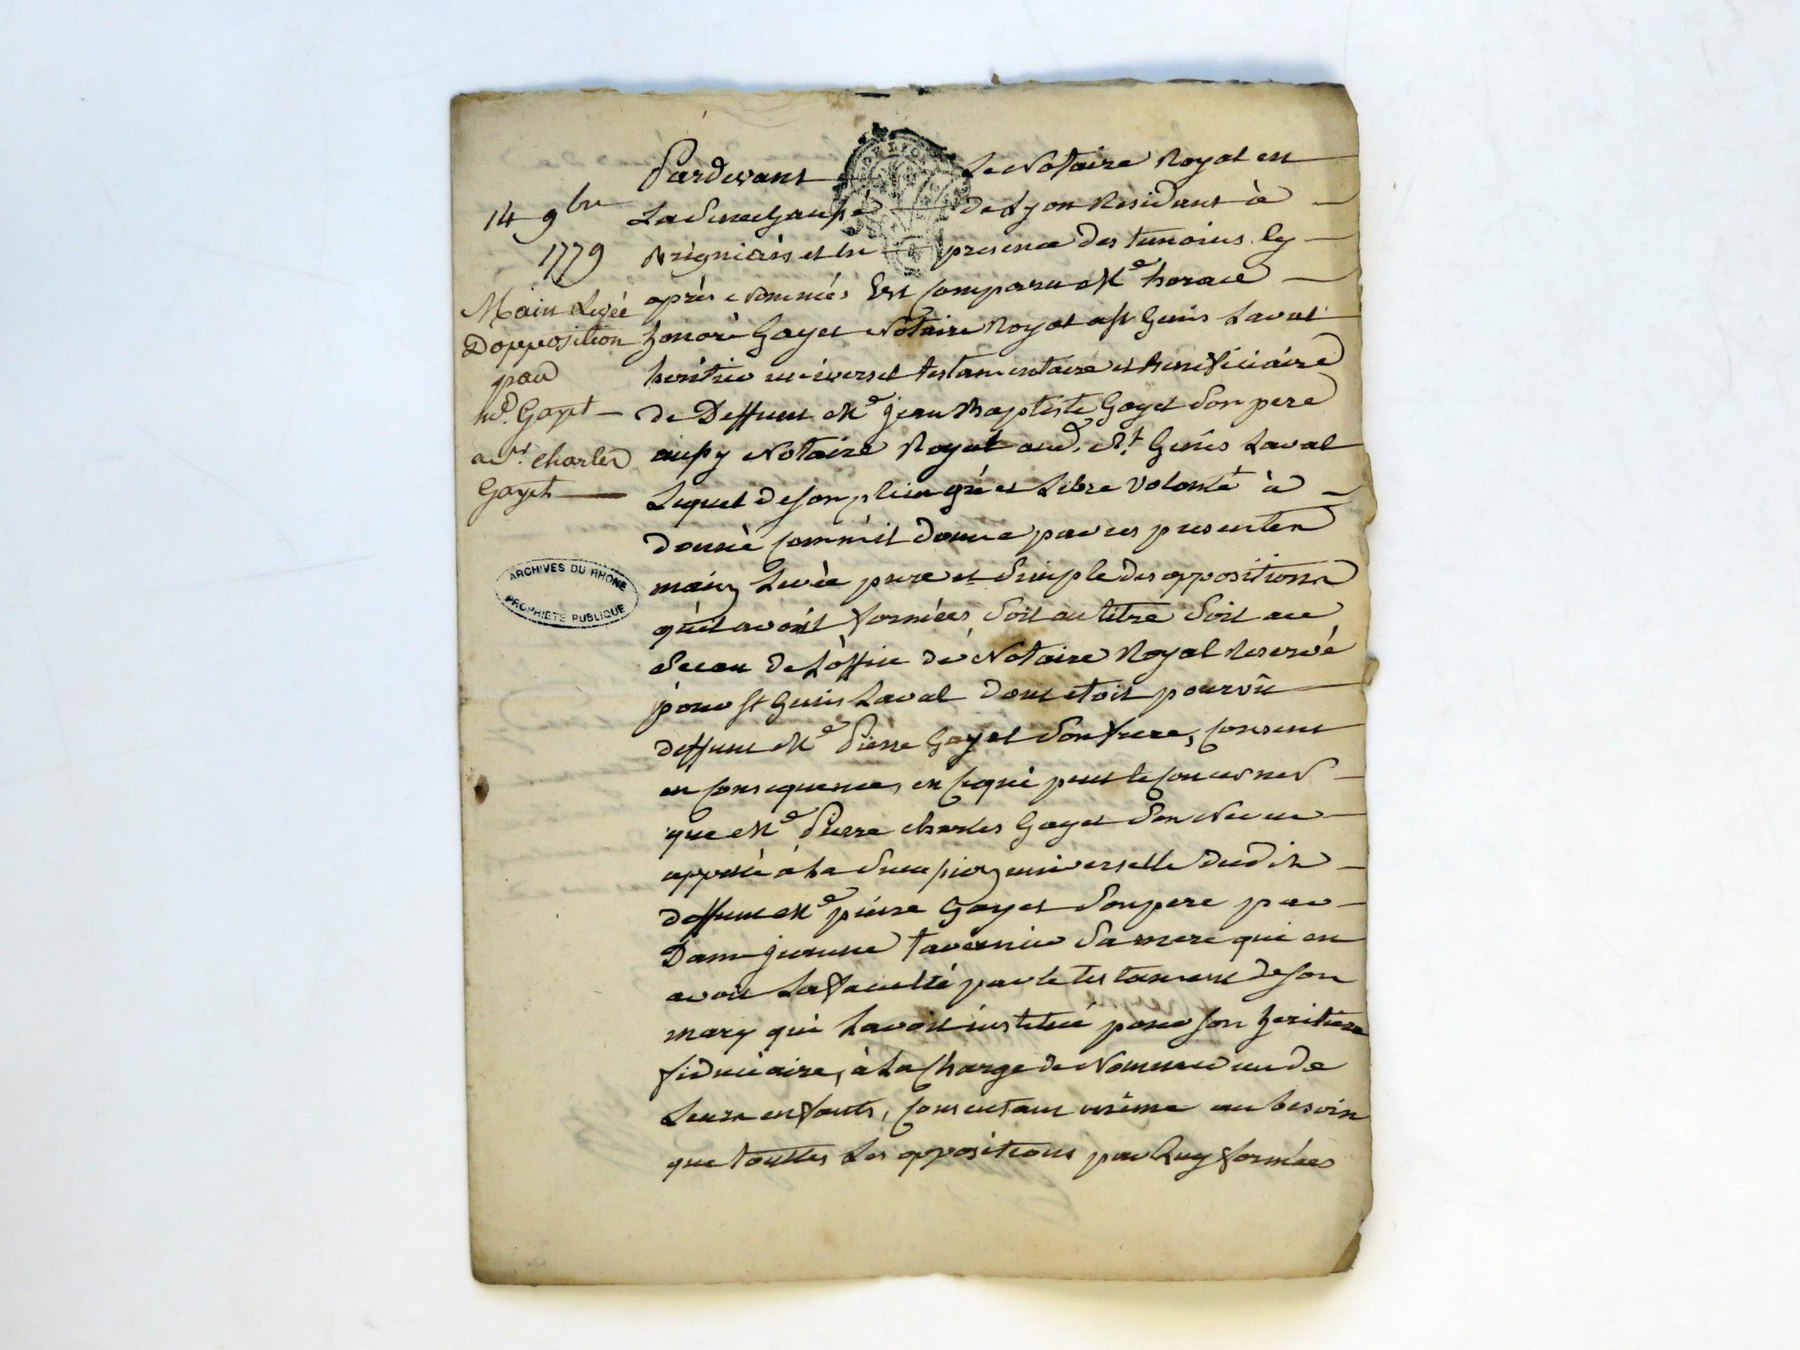 14 9bre
1779
Main Levée
Dopposition
par
Me. Gayet
a Mr. charles
Gayet
ARCHIVES DU RHONE
PROPRIÉTÉ PUBLIQUE
Pardevant Le Notaire Royal en
La Senechaussé de Lyon Residant à
Brignais et en presence des temoins cy
après nommés Est comparu Me horace
honoré Gayet Notaire Royal a St Genis Laval
heritier universel testamentaire et beneficiaire
de Deffunt Me jean Baptiste Gayet son pere
aussy Notaire Royal aud. St Genis Laval
Lequel de son plein gré et Libre volonté à
donné comm'il donne par ces presentes
main Levée pure et simple des oppositions
qu'il avoit formées soit au titre soit au
sceau de L'office de Notaire Royal Reservé
pour St Genis Laval dont etoit pourvû
deffunt Me Pierre Gayet son frere, consent
en consequence, en ce qui peut le concerner
que Me Pierre charles Gayet son Neveu
appellé à La succession universelle dudit
deffunt Me pierre Gayet son pere par
Dame jeanne tavernier sa mere qui en
avoit La faculté par le testament de son
mary qui Lavoit institué pour son heritiere
fiduciaire, à La charge de Nommer un de
Leurs enfants, consentant même au besoin
que touttes Les oppositions par Luy formées